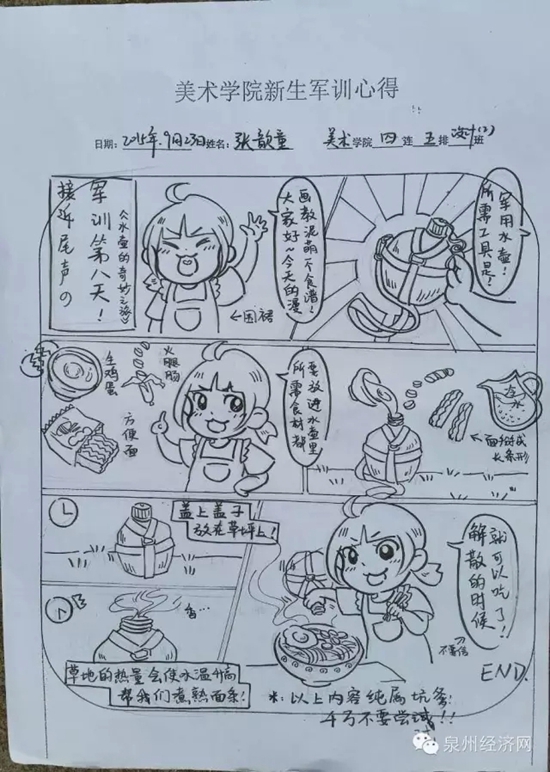 美术学院新生军训心得
日期：2015年.9月23日 姓名：张歆童 美术学院 四 连 五 排 班
军训第八天！
《水壶的奇妙之旅》
接近尾声の
大家好～今天的漫
画教泥萌个食谱！
←围裙
所需工具是：
军用水壶！
生鸡蛋
火腿肠
方便面
所需食材都
要放进水壶里
冷水
↖面掰成
长条形
盖上盖子
放在草坪上！
香…
草地的热量会使水温升高
帮我们煮熟面条！
解散的时候
就可以吃了！
不要信
END.
*：以上内容纯属坑爹！
千万不要尝试！！
泉州经济网